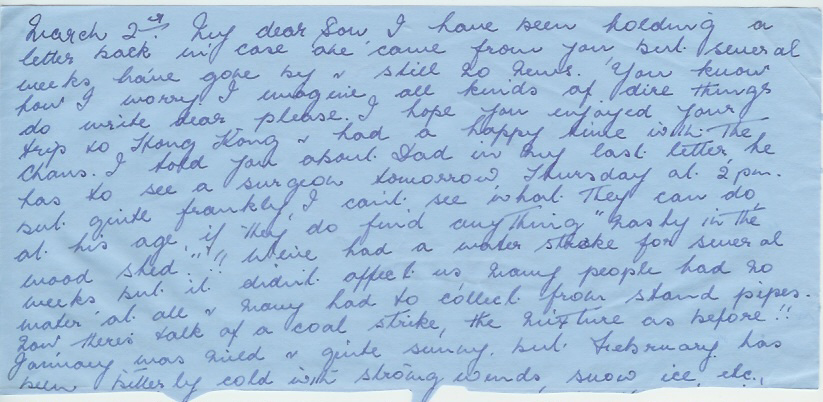 March 2nd. My dear Son, I have been holding a
letter back in case one came from you but several
weeks have gone by & still no news. You know
how I worry I imagine all kinds of dire things
do write dear please. I hope you enjoyed your
trip to Hong Kong & had a happy time with the
Chans. I told you about Dad in my last letter, he
has to see a surgeon tomorrow, Thursday at 2pm.
but quite frankly, I can't see what they can do,
at his age, if they do find anything "nasty in the
wood shed"!! We've had a water stroke for several
weeks but it didn't affect us many people had no
water at all & many had to collect from stand pipes.
now there's talk of a coal strike, the mixture as before!!
January was mild & quite sunny, but February has
been bitterly cold with strong winds, snow, ice, etc.,